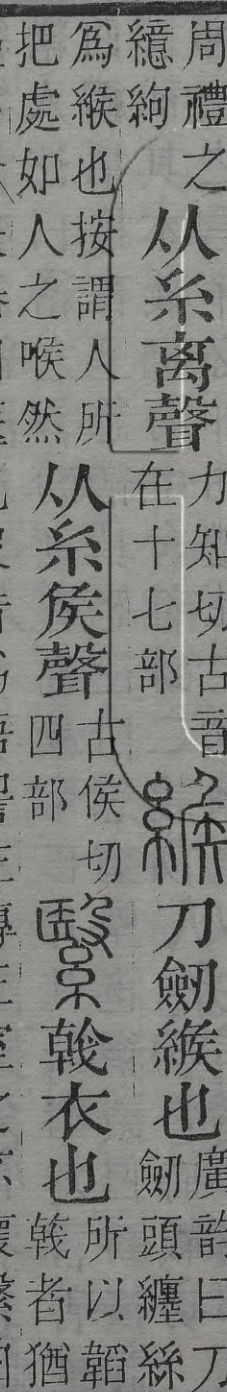 周禮之
繶絇
从糸离聲
力知切古音
在十七部
緱
刀劒緱也
廣韵曰刀
劒頭纏絲
爲緱也按謂人所
把處如人之喉然
从糸矦聲
古侯切
四部
繄
㦸衣也
所以韜
㦸者猶